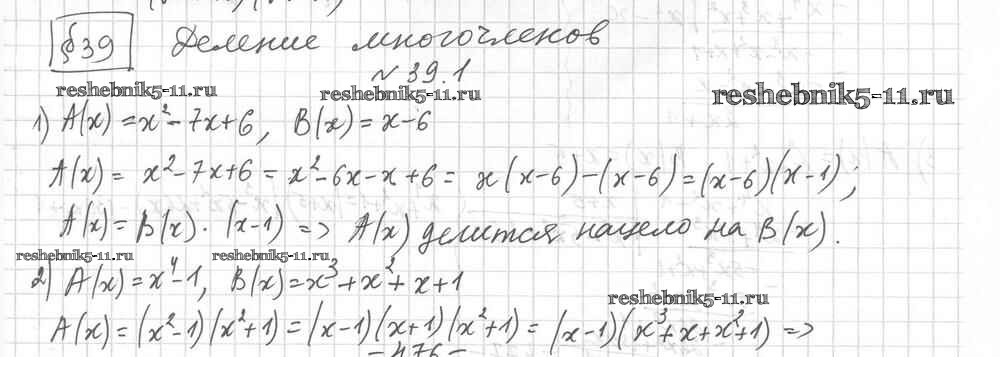 §39 Деление многочленов
№39.1
reshebnik5-11.ru reshebnik5-11.ru reshebnik5-11.ru
1) A(x)=x²-7x+6, B(x)=x-6
A(x)= x²-7x+6 = x²-6x-x+6= x(x-6)-(x-6)=(x-6)(x-1);
A(x)= B(x)·(x-1) => A(x) делится нацело на B(x).
reshebnik5-11.ru reshebnik5-11.ru
2) A(x)=x⁴-1, B(x)=x³+x²+x+1
reshebnik5-11.ru
A(x)=(x²-1)(x²+1)=(x-1)(x+1)(x²+1)=(x-1)(x³+x+x²+1) =>
-476-